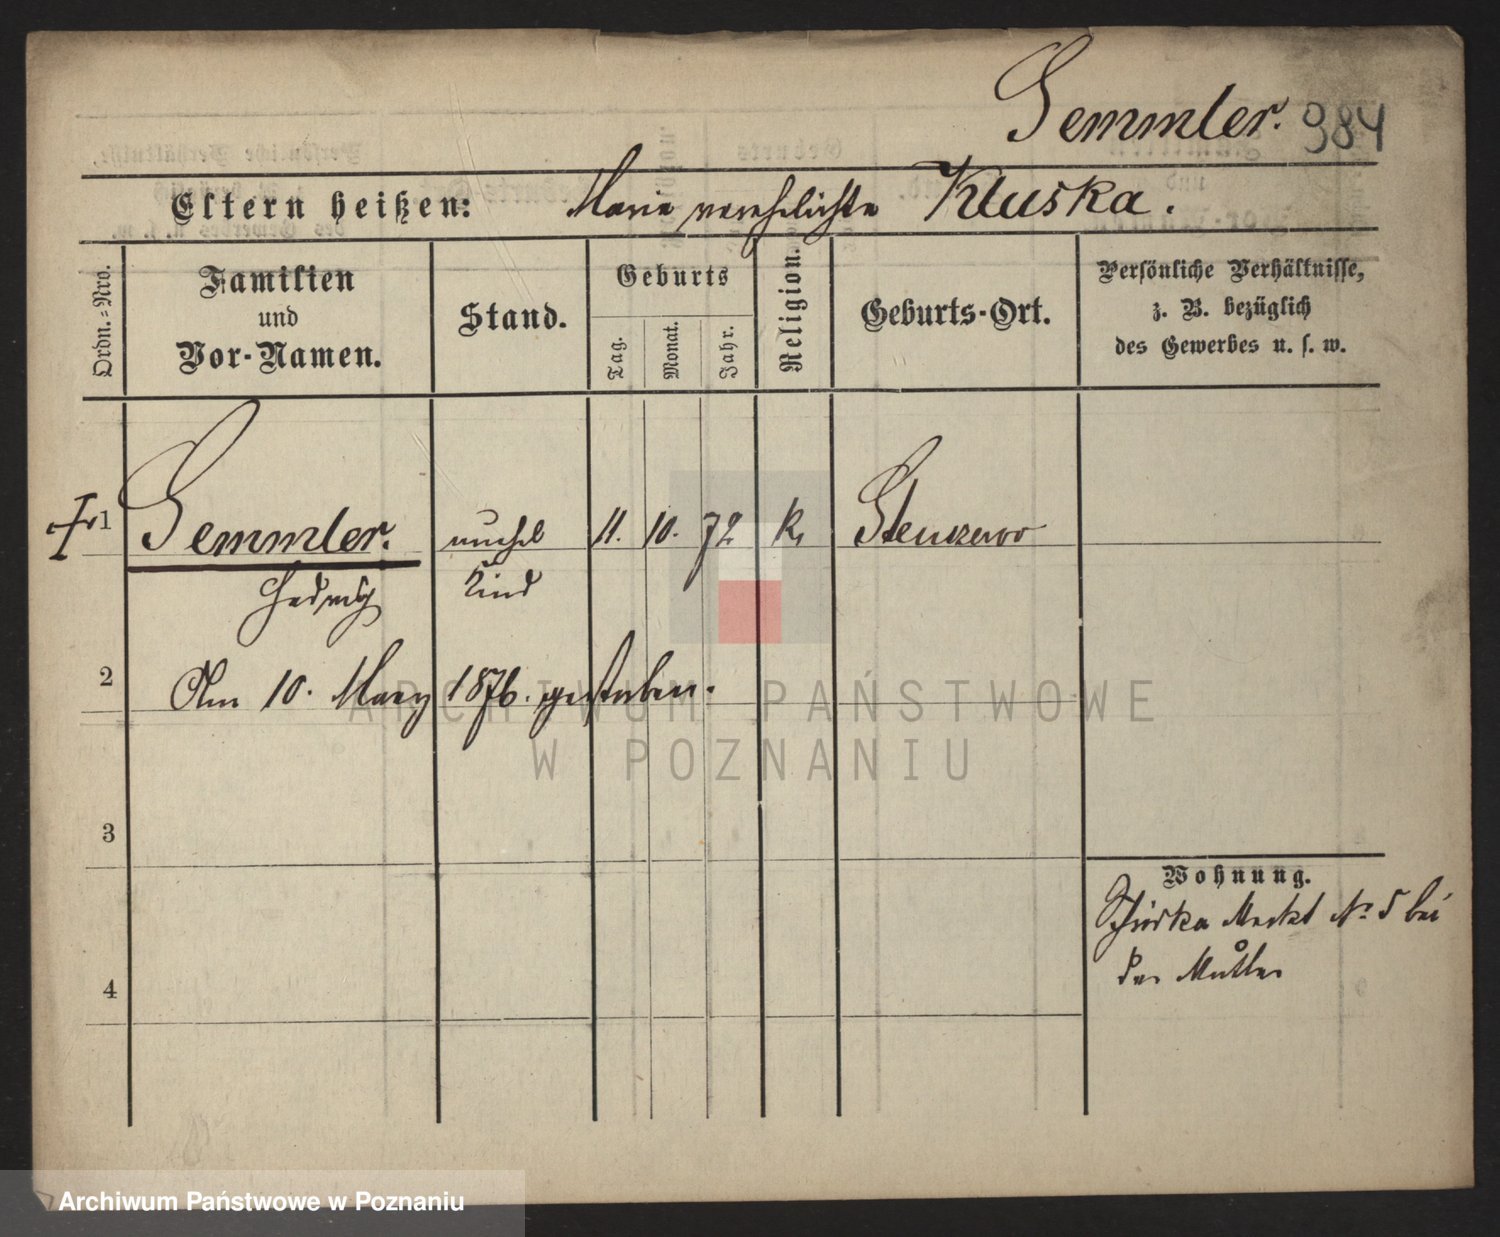 Semmler. 984
Eltern heißen: Marie verehelichte Kluska.
Ordn.=Nro.
Familien
und
Vor-Namen.
Stand.
Geburts
Tag.
Monat.
Jahr.
Religion.
Geburts-Ort.
Persönliche Verhältnisse,
z. B. bezüglich
des Gewerbes u. s. w.
1 Semmler. unehel 11. 10. 72 K. Stenczewo
Hedwig Kind
2 Am 10. Maerz 1876. gestorben.
3
4
Wohnung.
Schrodka Markt No 5 bei
der Mutter
ARCHIWUM PAŃSTWOWE
W POZNANIU
Archiwum Państwowe w Poznaniu